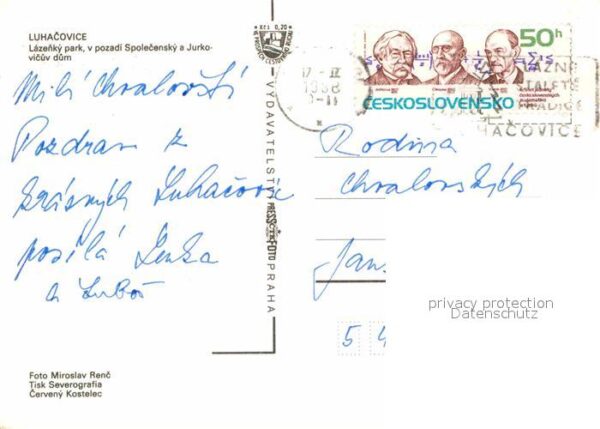 LUHAČOVICE
Lázeňký park, v pozadí Společenský a Jurko-
vičův dům
Milí Chvalovští
Pozdrav z
krásných Luhačovic
posílá Lenka
a Luboš
Foto Miroslav Renč
Tisk Severografia
Červený Kostelec
Kčs 0,20
VYDAVATELSTVÍ PRESSFOTO PRAHA
17.
1988
50h
ČESKOSLOVENSKO
LÁZNĚ
HAČOVICE
Rodina
Chvalovských
Jan
5 4
privacy protection
Datenschutz